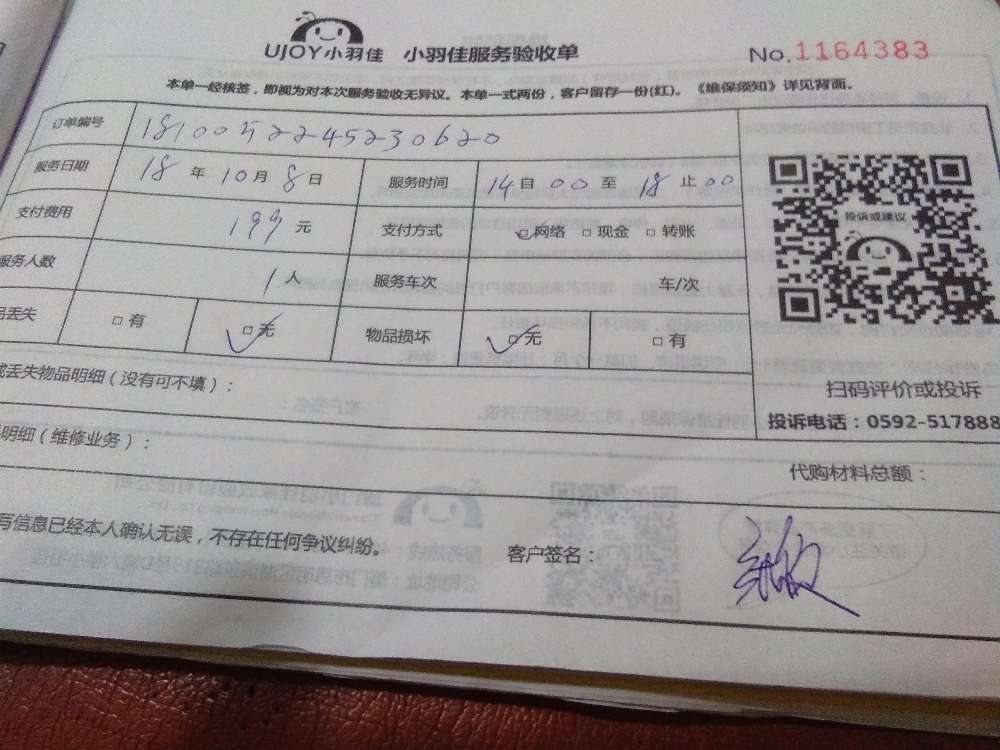 UJOY小羽佳 小羽佳服务验收单 No.1164383
本单一经核签，即视为对本次服务验收无异议。本单一式两份，客户留存一份(红)。《维保须知》详见背面。
订单编号 1810052245230620
服务日期 18 年 10 月 8 日 服务时间 14 自 00 至 18 止 00
支付费用 199 元 支付方式 □网络 □现金 □转账
服务人数 1 人 服务车次 车/次
丢失 □有 □无 物品损坏 □无 □有
投诉或建议
扫码评价或投诉
投诉电话：0592-517888
丢失物品明细（没有可不填）：
明细（维修业务）：
代购材料总额：
写信息已经本人确认无误，不存在任何争议纠纷。 客户签名：